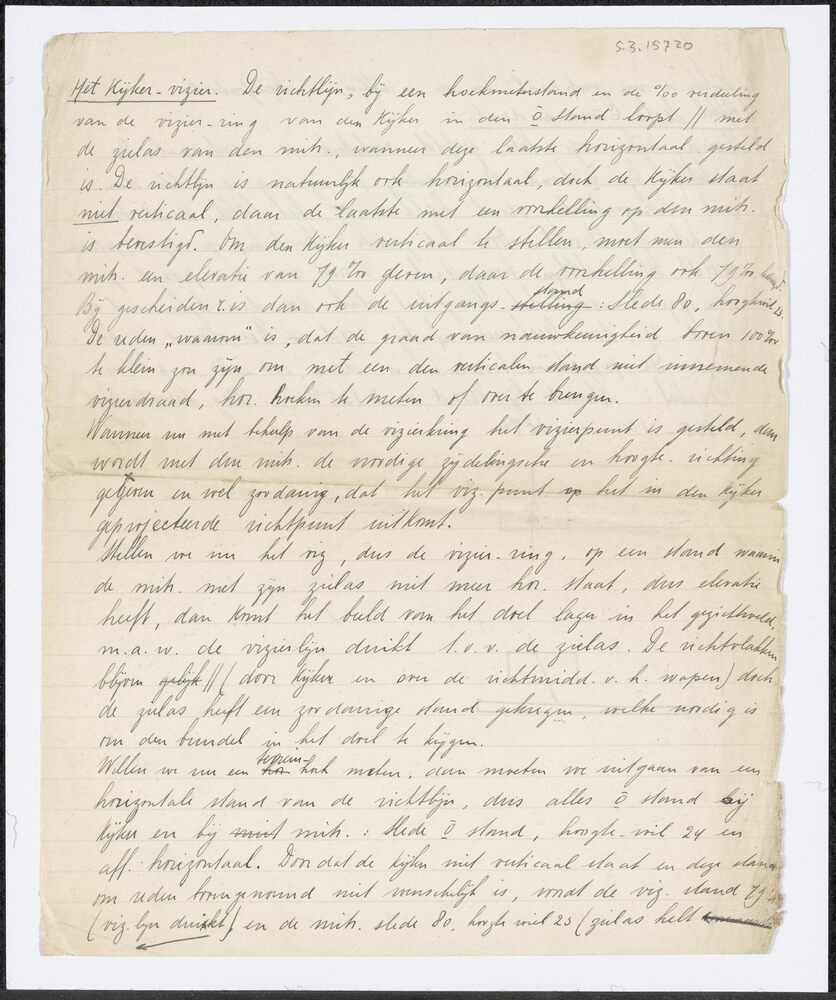 S.3. 15720
Het Kijker-vizier. De richtlijn, bij een hoekmeterstand en de º/oo verdeeling
van de vizier-ring van den Kijker in den O stand loopt // met
de zielas van den mitr., wanneer deze laatste horizontaal gesteld
is. De richtlijn is natuurlijk ook horizontaal, doch de Kijker staat
niet verticaal, daar de laatste met een voorhelling op den mitr.
is bevestigd. Om den Kijker verticaal te stellen, moet men den
mitr. een elevatie van 79 º/oo geven, daar de voorhelling ook 79 º/oo
Bij gescheiden r. is dan ook de uitgangs- stelling stand : Slede 80, hoogtewiel 23.
De reden „waarom" is, dat de graad van nauwkeurigheid boven 100 º/oo
te klein zou zijn om met een den verticalen stand niet innemende
vizierdraad, hor. hoeken te meten of over te brengen.
Wanneer nu met behulp van de vizierkring het vizierpunt is gesteld, dan
wordt met den mitr. de noodige zijdelingsche en hoogte-richting
gegeven en wel zoodanig, dat het viz. punt op het in den Kijker
geprojecteerde richtpunt uitkomt.
Stellen we nu het viz, dus de vizier-ring, op een stand waarin
de mitr. met zijn zielas niet meer hor. staat, dus elevatie
heeft, dan komt het beeld van het doel lager in het gezichtsveld,
m.a.w. de vizierlijn duikt t.o.v. de zielas. De richtvlakken
blijven gelijk // (door Kijker en over de richtmidd. v. h. wapen) doch
de zielas heeft een zoodanige stand gekregen, welke noodig is
om den bundel in het doel te krijgen.
Willen we nu een hor. terrein- hoek meten, dan moeten we uitgaan van een
horizontale stand van de richtlijn, dus alles O stand bij
Kijker en bij mitr. : Slede O stand, hoogte-wiel 24 en
aff. horizontaal. Doordat de Kijker niet verticaal staat en deze stand
om reden bovengenoemd niet wenschelijk is, wordt de viz. stand 79
(viz. lijn duikt) en de mitr. slede 80, hoogte wiel 23 (zielas helt